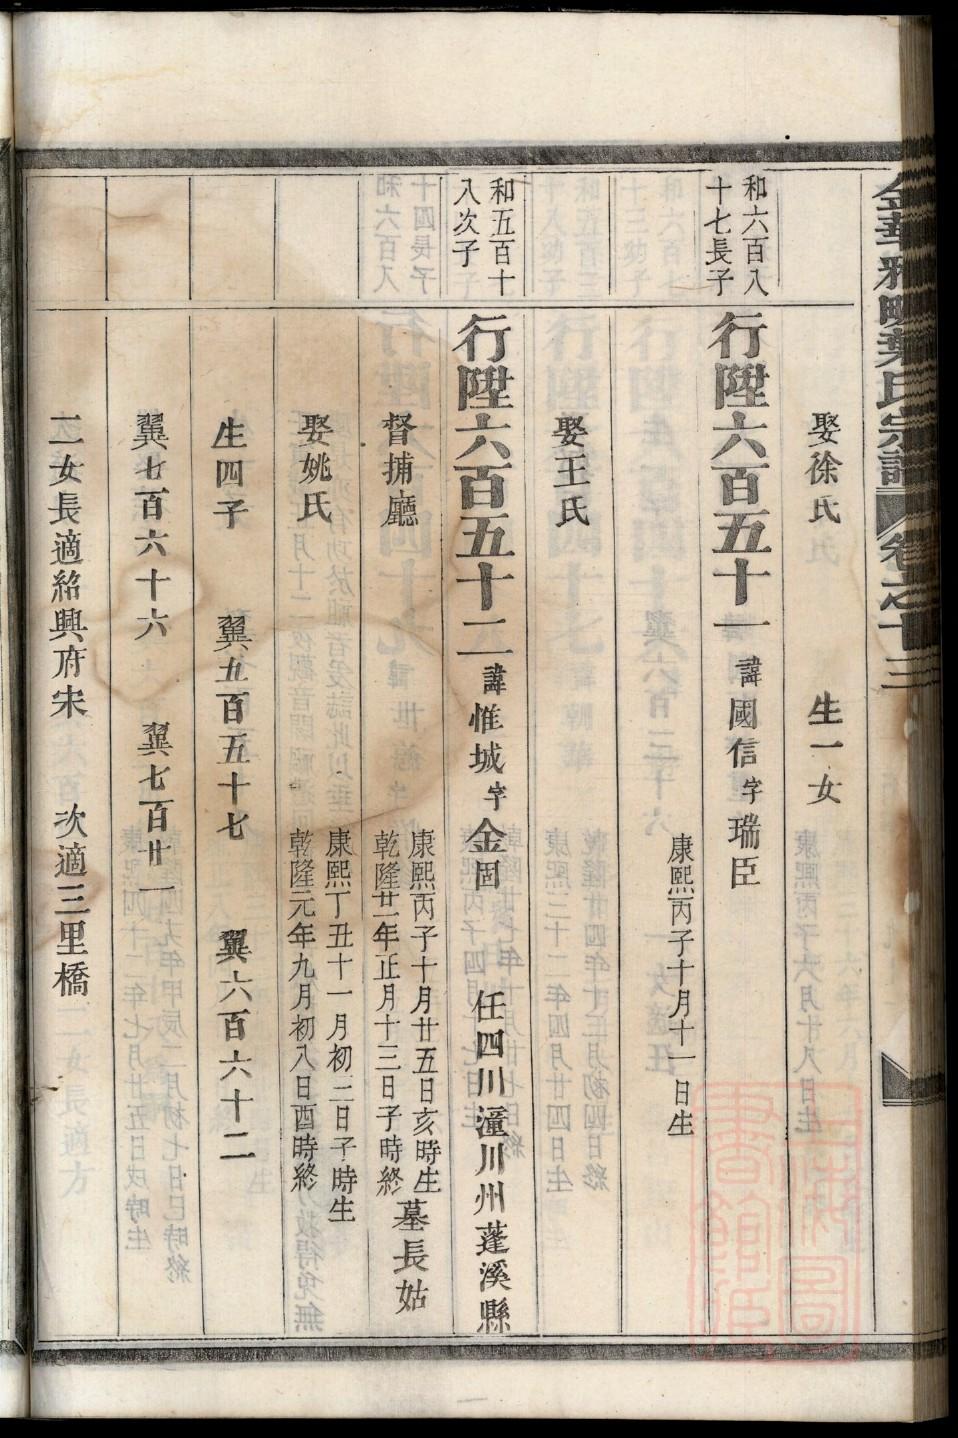 金華雅畈葉氏宗譜 卷之十三
娶徐氏 生一女
和六百八
十七長子
行陞六百五十一 諱國信字瑞臣
康熙丙子十月十一日生
娶王氏
和五百十
八次子
行陞六百五十二 諱惟城字金固 任四川潼川州蓬溪縣
督捕廳
康熙丙子十月廿五日亥時生
乾隆廿一年正月十三日子時終
墓長姑
娶姚氏
康熙丁丑十一月初二日子時生
乾隆元年九月初八日酉時終
生四子 翼五百五十七 翼六百六十二
翼七百六十六 翼七百廿一
二女長適紹興府宋 次適三里橋